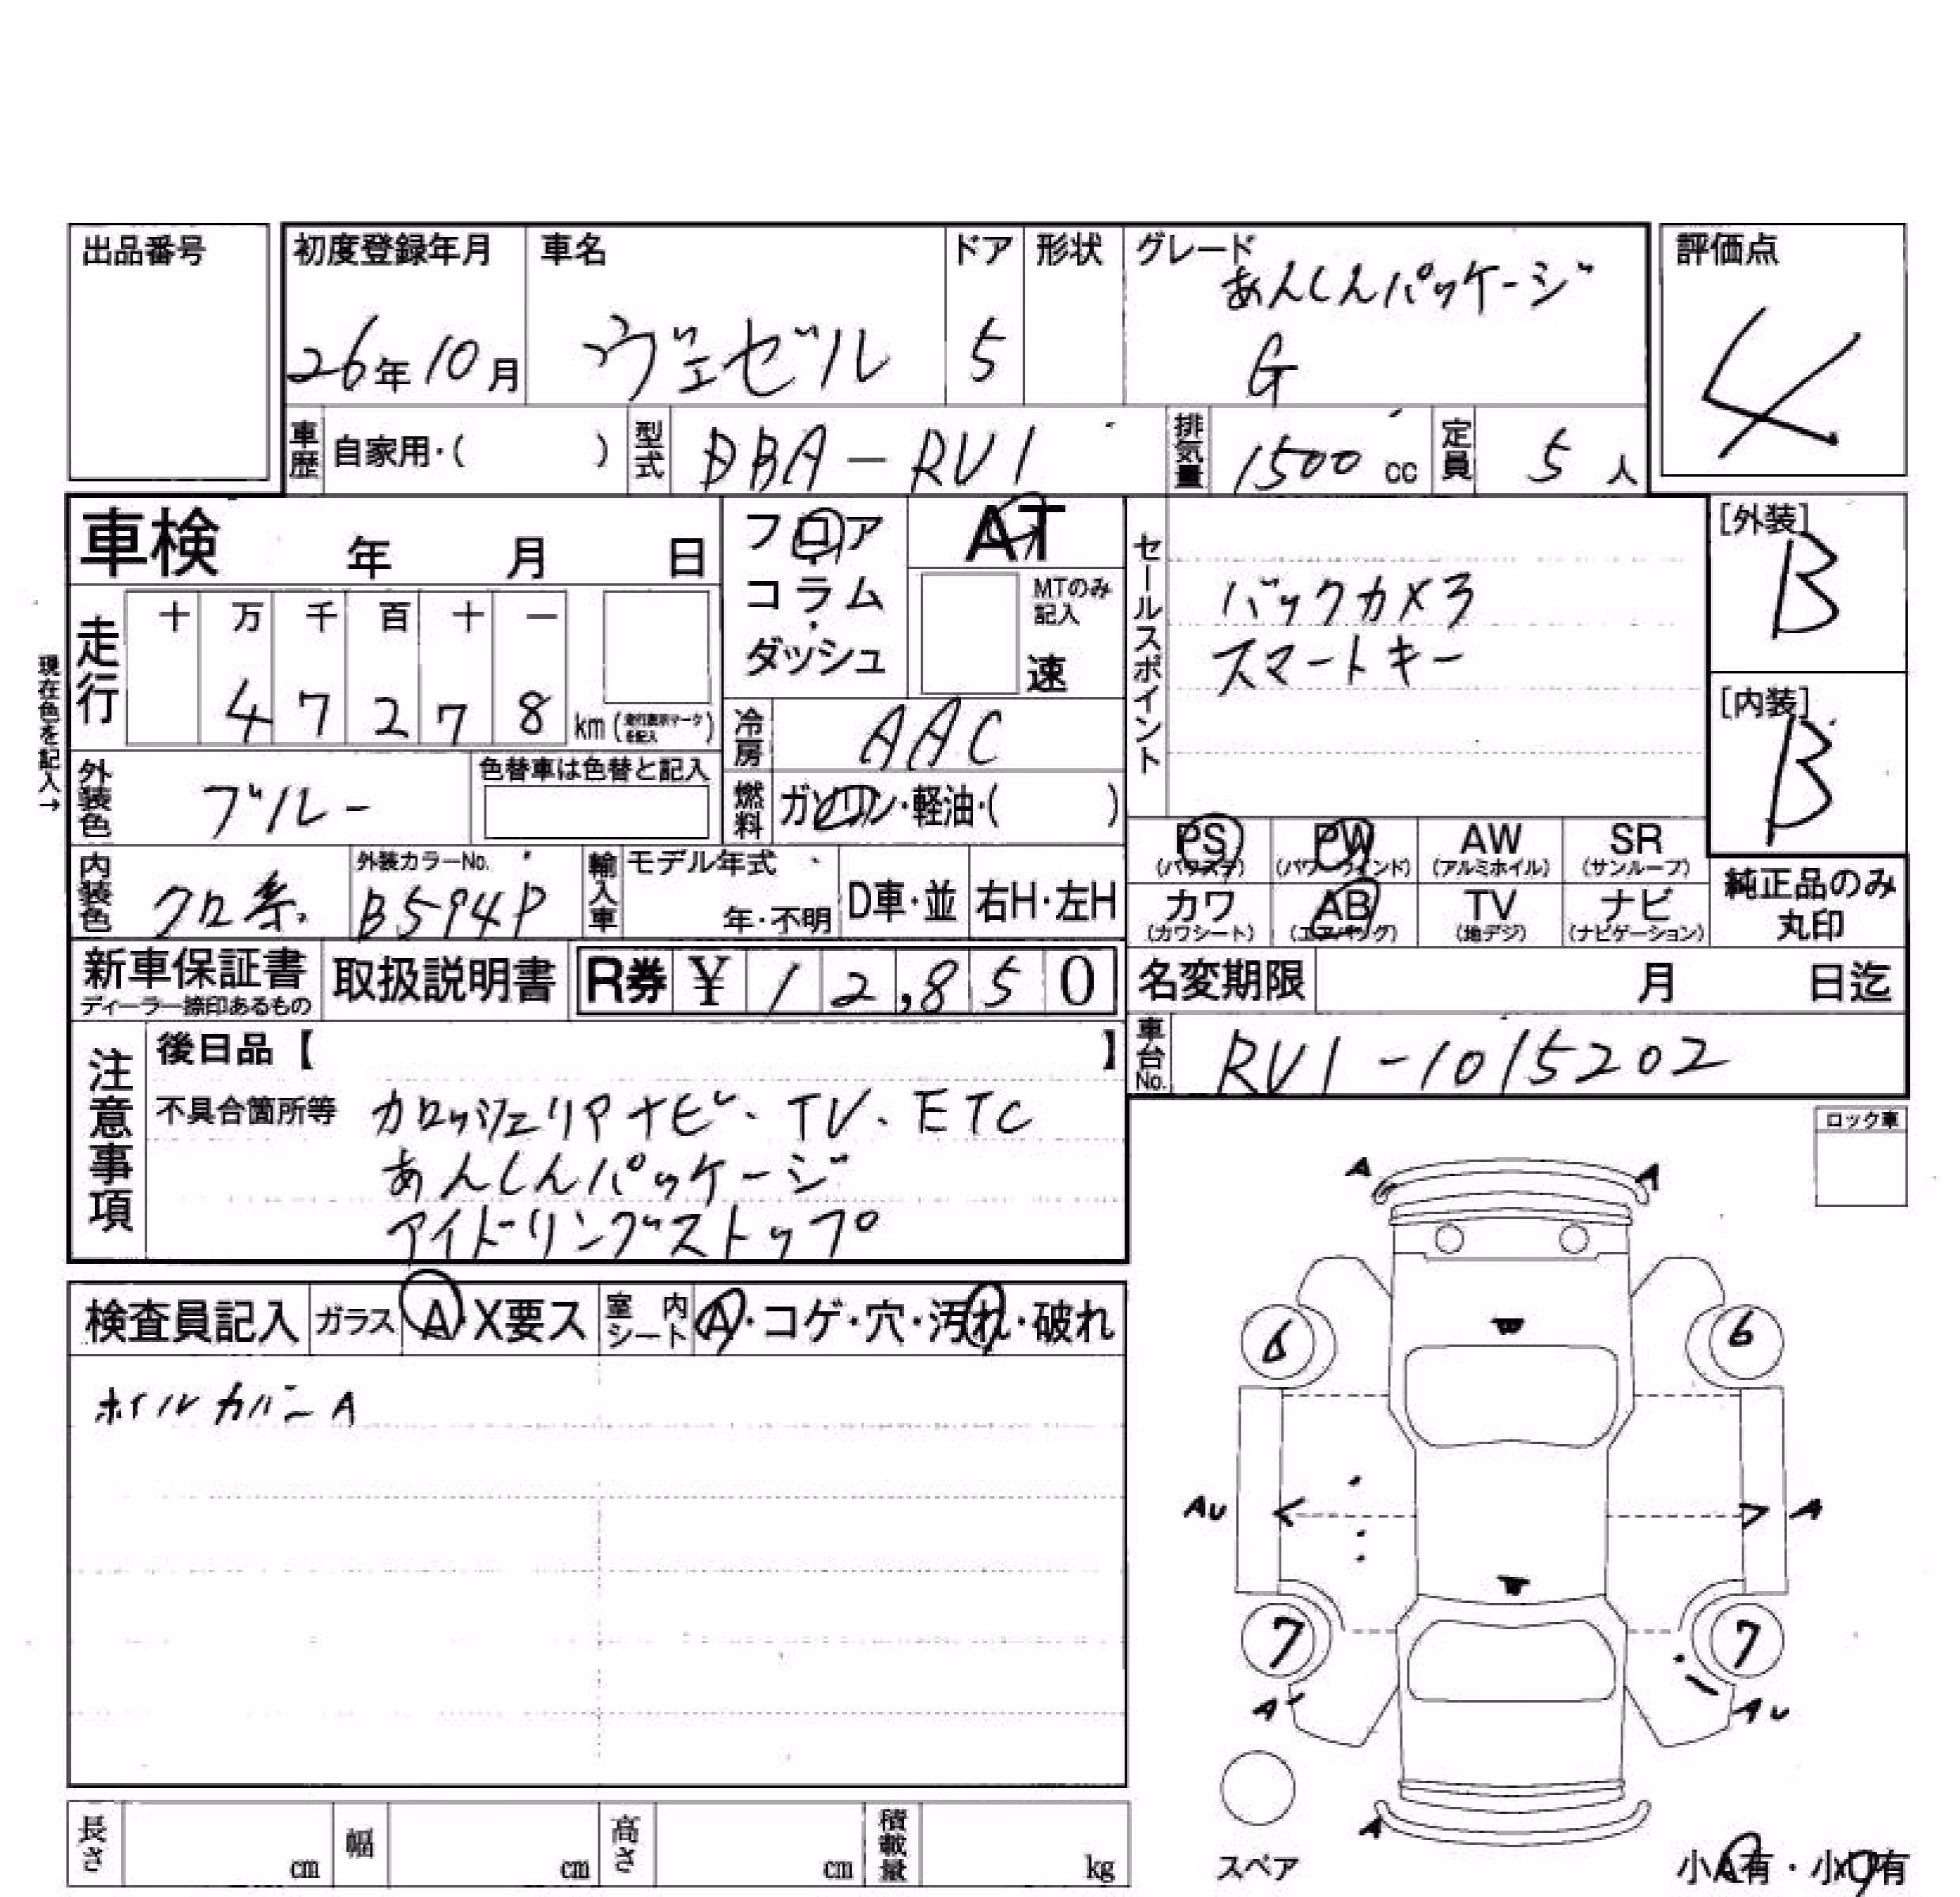 出品番号
初度登録年月 車名 ドア 形状 グレード 評価点
あんしんパッケージ
26年10月 ヴェゼル 5 G 4
車歴 自家用・( ) 型式 DBA-RU1 排気量 1500cc 定員 5人
車検 年 月 日 フロア AT セールスポイント [外装]
コラム MTのみ記入 バックカメラ B
ダッシュ 速 スマートキー
現在色を記入→
走行 十 万 千 百 十 一
4 7 2 7 8 km (走行距離マークを記入) 冷房 AAC [内装]
外装色 ブルー 色替車は色替と記入 燃料 ガソリン・軽油・( ) B
PS (パワステ) PW (パワーウインド) AW (アルミホイル) SR (サンルーフ)
内装色 クロ系 外装カラーNo. B594P 輸入車 モデル年式 年・不明 D車・並 右H・左H
カワ (カワシート) AB (エアバッグ) TV (地デジ) ナビ (ナビゲーション) 純正品のみ丸印
新車保証書 ディーラー捺印あるもの 取扱説明書 R券 ¥ 12,850 名変期限 月 日迄
車台No. RU1-1015202
注意事項 後日品【 】
不具合箇所等 カロッツェリアナビ、TV、ETC
あんしんパッケージ
アイドリングストップ
ロック車
検査員記入 ガラス A・X要ス 室内シート A・コゲ・穴・汚れ・破れ
ホイルカバーA
A A
W
6 6
AU A
W
7 7
A AU
A
スペア
長さ cm 幅 cm 高さ cm 積載量 kg
小A有・小U有